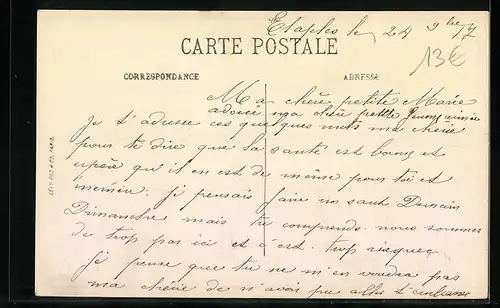 Etaples le 24 9bre 17
13€
CARTE POSTALE
CORRESPONDANCE
ADRESSE
Ma chère petite Marie
adorée ma chère petite femme aimée
Je t'adresse ces quelques mots ma chérie
pour te dire que la santé est bonne et
espère qu'il en est de même pour toi et
je pensais faire un saut Demain
Dimanche mais tu comprends nous sommes
de trop pas ici et c'est trop risquer
je pense que tu ne m'en voudra pas
ma chérie de n'avoir pu aller t'embrasser
LEVY FILS & CIE, PARIS